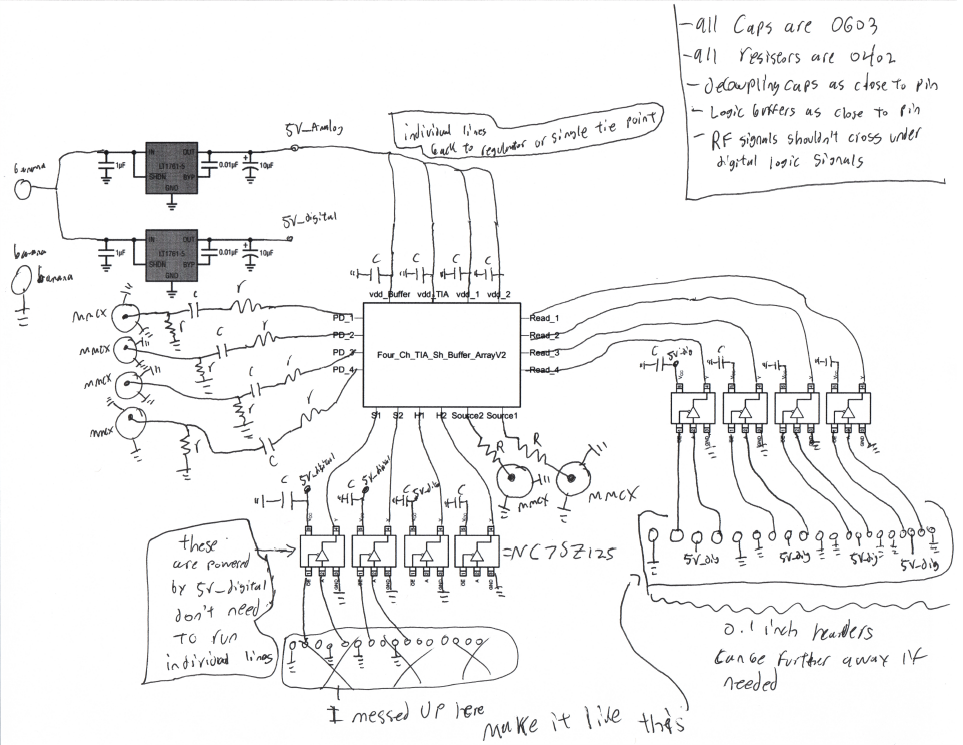 -all Caps are 0603
-all resistors are 0402
- decoupling caps as close to pin
- Logic buffers as close to pin
- RF signals shouldn't cross under
digital logic signals
individual lines
back to regulator or single tie point
5V_Analog
banana
1µF
IN OUT
LT1761-5
SHDN BYP
GND
0.01µF
10µF
5V_digital
1µF
IN OUT
LT1761-5
SHDN BYP
GND
0.01µF
10µF
banana
banana
C C C C
vdd_Buffer vdd_TIA vdd_1 vdd_2
MMCX C r
r
MMCX C r
r
MMCX C r
r
MMCX C r
r
PD_1
PD_2
PD_3
PD_4
Four_Ch_TIA_Sh_Buffer_ArrayV2
Read_1
Read_2
Read_3
Read_4
S1 S2 H1 H2 Source2 Source1
R R
MMCX
MMCX
C 5V_dig C C C
Vcc Y Vcc Y Vcc Y Vcc Y
OE A GND OE A GND OE A GND OE A GND
C 5V_digital C 5V_digital C 5V_dig C
Vcc Y Vcc Y Vcc Y Vcc Y
OE A GND OE A GND OE A GND OE A GND
=NC7SZ125
these
are powered
by 5V_digital
don't need
to run
individual lines
5V_dig 5V_dig 5V_dig 5V_dig
0.1 inch headers
can be further away if
needed
I messed up here
make it like this